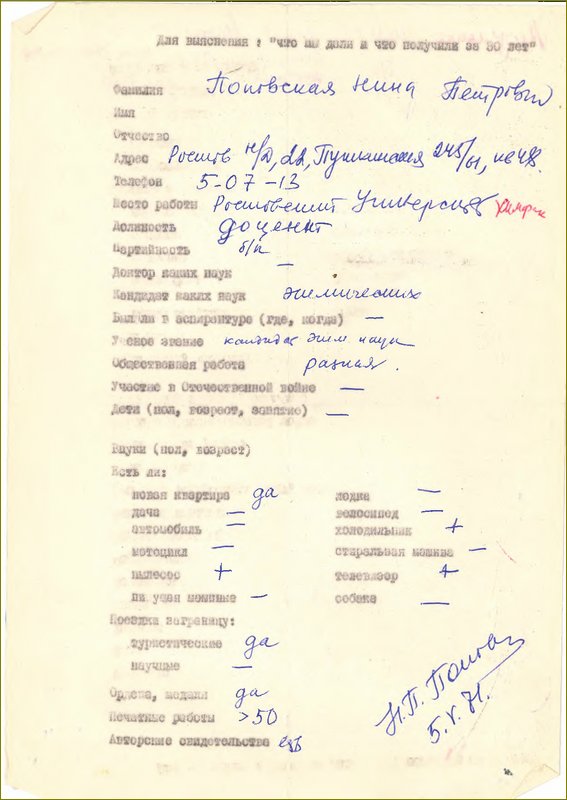 Для выяснения : "что мы дали и что получили за 30 лет"
Фамилия Поповская Нина Петровна
Имя
Отчество
Адрес Ростов н/Д, 22, Пушкинская 245/61, кв 48.
Телефон 5-07-13
Место работы Ростовский Университет химфак
Должность доцент
Партийность б/п
Доктор каких наук —
Кандидат каких наук химических
Был ли в аспирантуре (где, когда) —
Ученое звание кандидат хим наук
Общественная работа разная.
Участие в Отечественной войне —
Дети (пол, возраст, занятие) —
Внуки (пол, возраст)
Есть ли:
новая квартира да лодка —
дача — велосипед —
автомобиль — холодильник +
мотоцикл — стиральная машина —
пылесос + телевизор +
пишущая машинка — собака —
Поездка заграницу:
туристические да
научные —
Ордена, медали да
Печатные работы >50
Авторские свидетельства есть
Н.П. Попов
5.V.71.